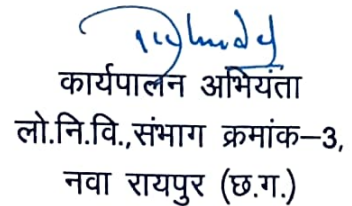 कार्यपालन अभियंता
लो.नि.वि.,संभाग क्रमांक–3,
नवा रायपुर (छ.ग.)